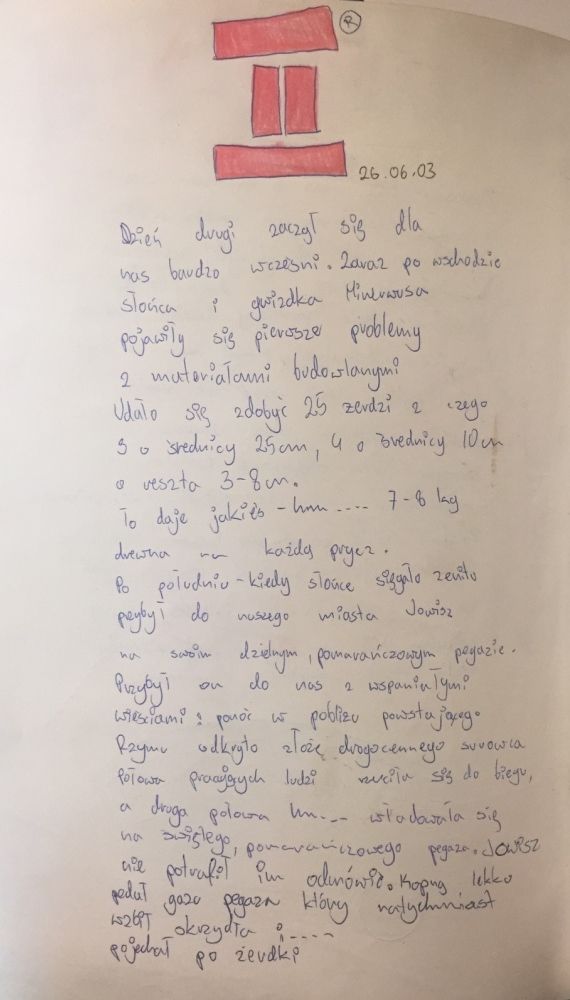 ®
26.06.03
Dzień drugi zaczął się dla
nas bardzo wcześni. Zaraz po wschodzie
słońca i gwizdka Minerwusa
pojawiły się pierwsze problemy
z materiałami budowlanymi
Udało się zdobyć 25 żerdzi z czego
o średnicy 25cm, 4 o średnicy 10cm
a reszta 3-8cm.
To daje jakieś - hmm .... 7-8 kg
drewna na każdą pryczę.
Po południu - kiedy słońce sięgało zenitu
przybył do naszego miasta Jowisz
na swoim dzielnym, pomarańczowym pegazie.
Przybył on do nas z wspaniałymi
wieściami: ponoć w pobliżu powstającego
Rzymu odkryto złożę drogocennego surowca
Połowa pracujących ludzi rzuciła się do biegu,
a druga połowa hm... władowała się
na świętego, pomarańczowego pegaza. Jowisz
nie potrafił im odmówić. Kopną lekko
pedał gazu pegaza który natychmiast
wzbił okrzydła i ....
pojechał po żerdki